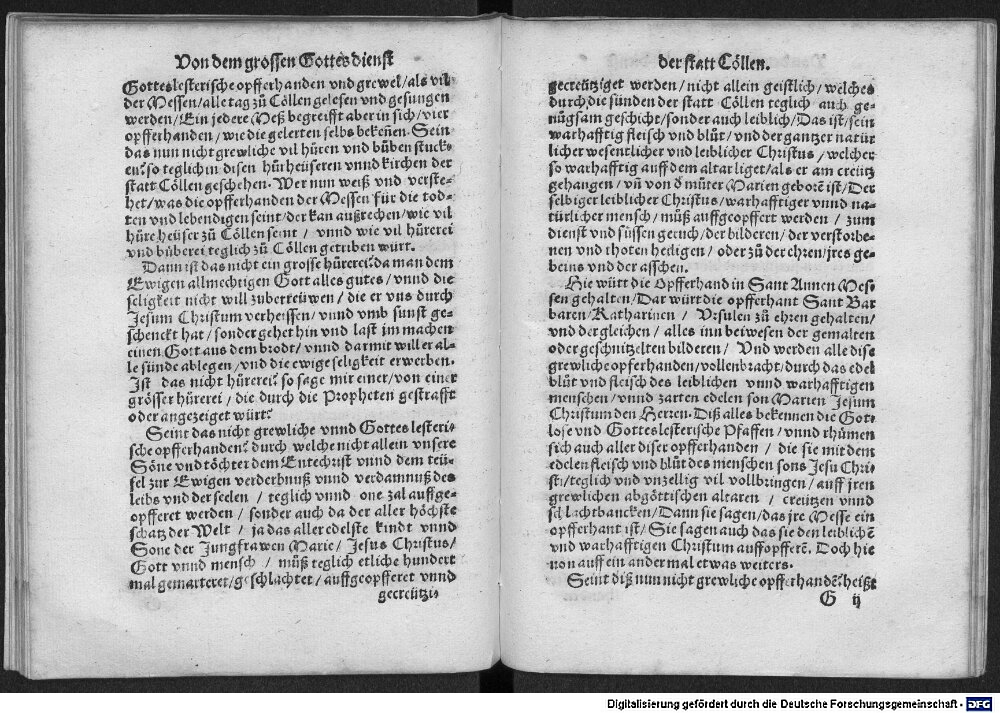 Von dem grossen Gottes dienst
Gotteslesterische opfferhanden vnd grewel/als vil
der Messen/alle tag zů Cöllen gelesen vnd gesungen
werden/Ein jedere Meß begreifft aber in sich/vier
opfferhanden/wie die gelerten selbs bekeñen. Sein
das nun nicht grewliche vil hůren vnd bůben stuck-
en? so teglich in disen hůrheüseren vnnd kirchen der
statt Cöllen geschehen. Wer nun weiß vnd verste-
het/was die opfferhanden der Messen für die tod-
ten vnd lebendigen seint/der kan außrechen/wie vil
hůre heüser zů Cöllen seint / vnnd wie vil hůrerei
vnd bůberei teglich zů Cöllen getriben würt.
Dann ist das nicht ein grosse hůrerei? da man dem
Ewigen allmechtigen Gott alles gutes/vnnd die
seligkeit nicht will zuuertrewen/die er vns durch
Jesum Christum verheissen/vnnd vmb sunst ge-
schenckt hat/sonder gehet hin vnd last im machen
einen Gott aus dem brodt/vnnd darmit will er al-
le sünde ablegen/vnd die ewige seligkeit erwerben.
Ist das nicht hůrerei? so sage mir einer/von einer
grösser hůrerei/die durch die Propheten gestrafft
oder angezeiget würt?
Seint das nicht grewliche vnnd Gottes lesteri-
sche opfferhanden? durch welche nicht allein vnsere
Söne vnd töchter dem Entechrist vnnd dem teü-
fel zur Ewigen verderbnuß vnnd verdamnuß des
leibs vnd der seelen / teglich vnnd one zal auffge-
opfferet werden / sonder auch da der aller höchste
schatz der Welt / ja das aller edelste kindt vnnd
Sone der Jungfrawen Marie/Jesus Christus/
Gott vnnd mensch / můß teglich etliche hundert
mal gemarteret/geschlachtet/auffgeopfferet vnnd
gecreützi-
der statt Cöllen.
gecreütziget werden/nicht allein geistlich/welches
durch die sünden der statt Cöllen teglich auch ge-
nůgsam geschicht/sonder auch leiblich/Das ist/sein
warhafftig fleisch vnd blůt/vnd der gantzer natür
licher wesentlicher vnd leiblicher Christus/welcher
so warhafftig auff dem altar liget/als er am creütz
gehangen/vñ von d̄ můter Marien geborē ist/Der
selbiger leiblicher Christus/warhafftiger vnnd na-
türlicher mensch/můß auffgeopffert werden / zum
dienst vnd süssen geruch/der bilderen/der verstorbe-
nen vnd thoten heiligen/oder zů der ehren/jres ge-
beins vnd der asschen.
Hie würt die Opfferhand in Sant Annen Mes-
sen gehalten/Dar würt die opfferhant Sant Bar
baren/Katharinen / Vrsulen zů ehren gehalten/
vnd der gleichen / alles inn beiwesen der gemalten
oder geschnitzelten bilderen/ Vnd werden alle dise
grewliche opfferhanden/vollenbracht/durch das edel
blůt vnd fleisch des leiblichen vnnd warhafftigen
menschen/vnnd zarten edelen son Marien Jesum
Christum den Herren. Diß alles bekennen die Got-
lose vnd Gotteslesterische Pfaffen/vnnd rhůmen
sich auch aller diser opfferhanden / die sie mit dem
edelen fleisch vnd blůt des menschen sons Jesu Chri
sti/teglich vnd vnzellig vil vollbringen/auff jren
grewlichen abgöttischen altaren / creützen vnnd
schlachtbancken/Dann sie sagen/das jre Messe ein
opfferhant ist/Sie sagen auch das sie den leiblichē
vnd warhafftigen Christum auffopfferē. Doch hie
von auff ein ander mal etwas weiters.
Seint diß nun nicht grewliche opfferhandē? heißt
G ij
Digitalisierung gefördert durch die Deutsche Forschungsgemeinschaft - DFG